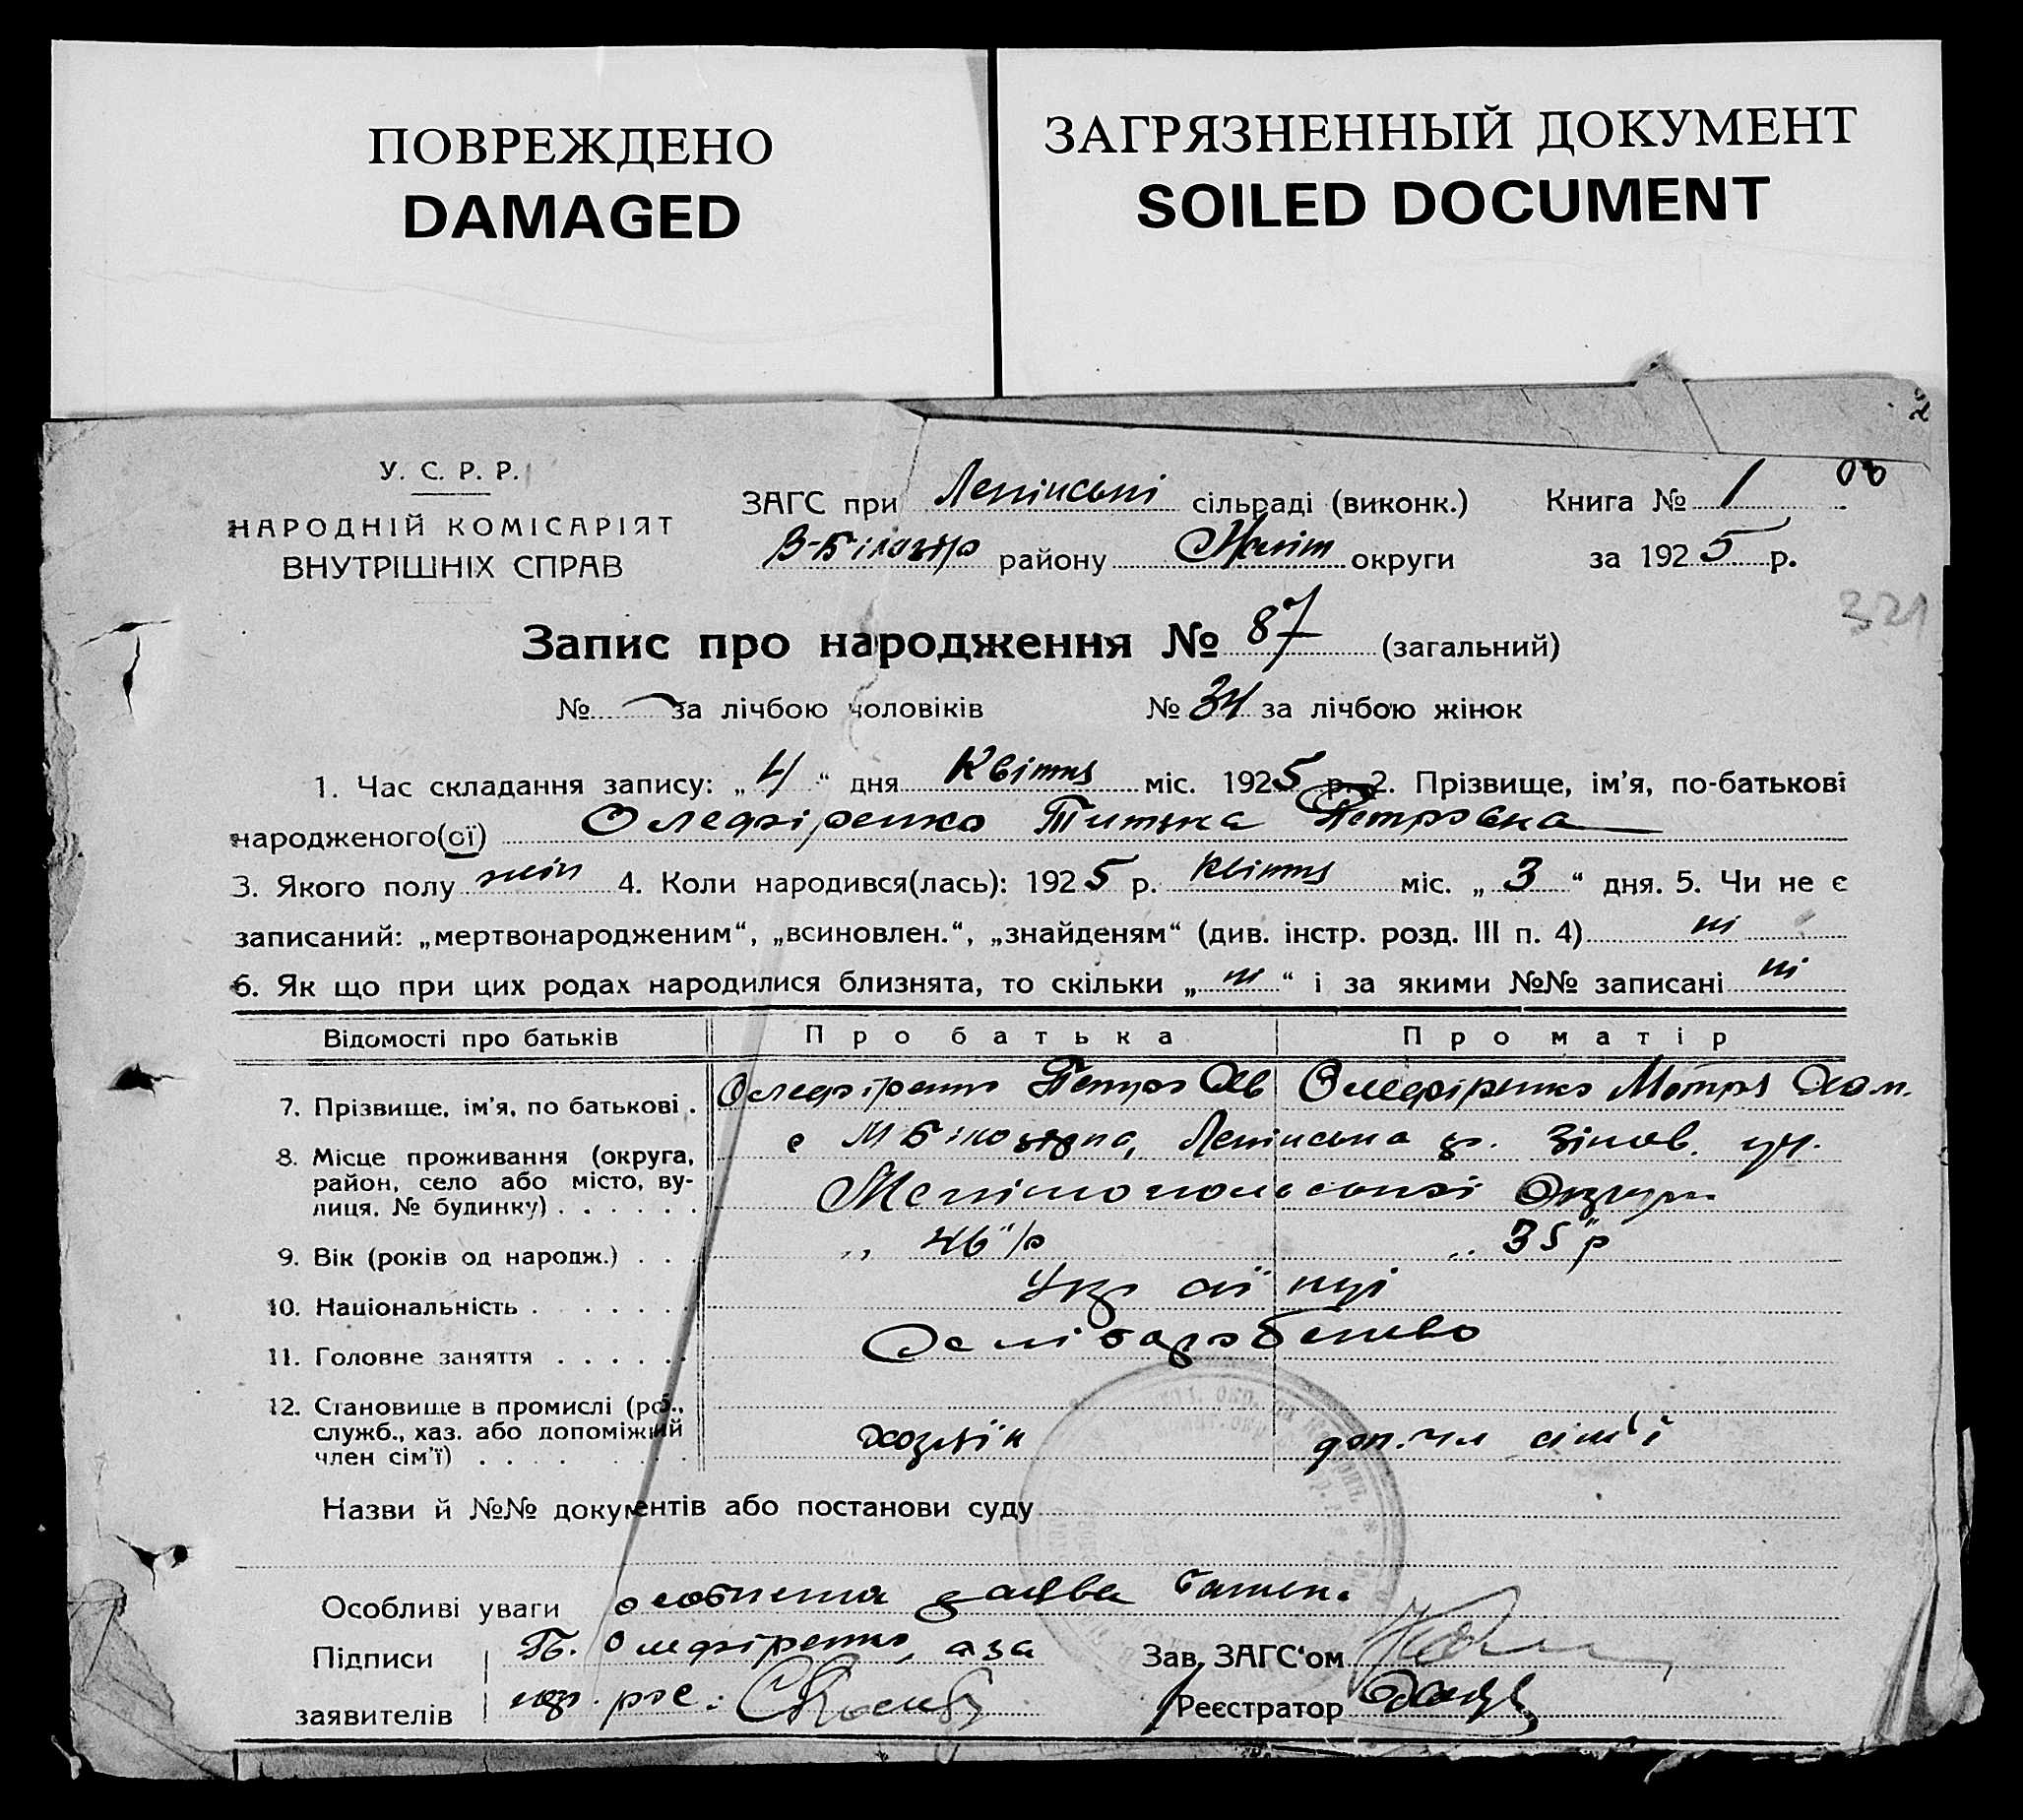 ПОВРЕЖДЕНО
DAMAGED
ЗАГРЯЗНЕННЫЙ ДОКУМЕНТ
SOILED DOCUMENT
У. С. Р. Р.
НАРОДНІЙ КОМІСАРІЯТ
ВНУТРІШНІХ СПРАВ
ЗАГС при Ленінські сільраді (виконк.) Книга № 1
В-Білозір району Меліт округи за 1925 р.
321
Запис про народження № 87 (загальний)
№ за лічбою чоловіків № 34 за лічбою жінок
1. Час складання запису: „4“ дня Квітня міс. 1925 р. 2. Прізвище, ім'я, по-батькові
народженого(ої) Олефіренко Титяна Петровна
3. Якого полу жін 4. Коли народився(лась): 1925 р. Квітня міс. „3“ дня. 5. Чи не є
записаний: „мертвонародженим“, „всиновлен.“, „знайденям“ (див. інстр. розд. III п. 4) ні
6. Як що при цих родах народилися близнята, то скільки „ні“ і за якими №№ записані ні
Відомості про батьків Про батька Про матір
7. Прізвище, ім'я, по батькові . Олефіренко Петро Ов Олефіренко Мотря Хом.
8. Місце проживання (округа, район, село або місто, вулиця, № будинку) . . . . . . с М Білозірка, Ленінська
Мелітопольської Округи
9. Вік (років од народж.) . . . „ 46 "р „ 35 "р
10. Національність . . . . . . . Українці
11. Головне заняття . . . . . . Хліборобство
12. Становище в промислі (роб.,
служб., хаз. або допоміжний
член сім'ї) . . . . . . . . хозяїн доп. чл сім'ї
Назви й №№ документів або постанови суду
Особливі уваги особиста заява батьк.
Підписи П. Олефіренко, а за Зав. ЗАГС'ом
заявителів рос: Реєстратор